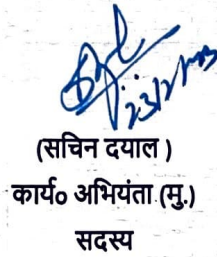 (सचिन दयाल )
कार्य० अभियंता (मु.)
सदस्य